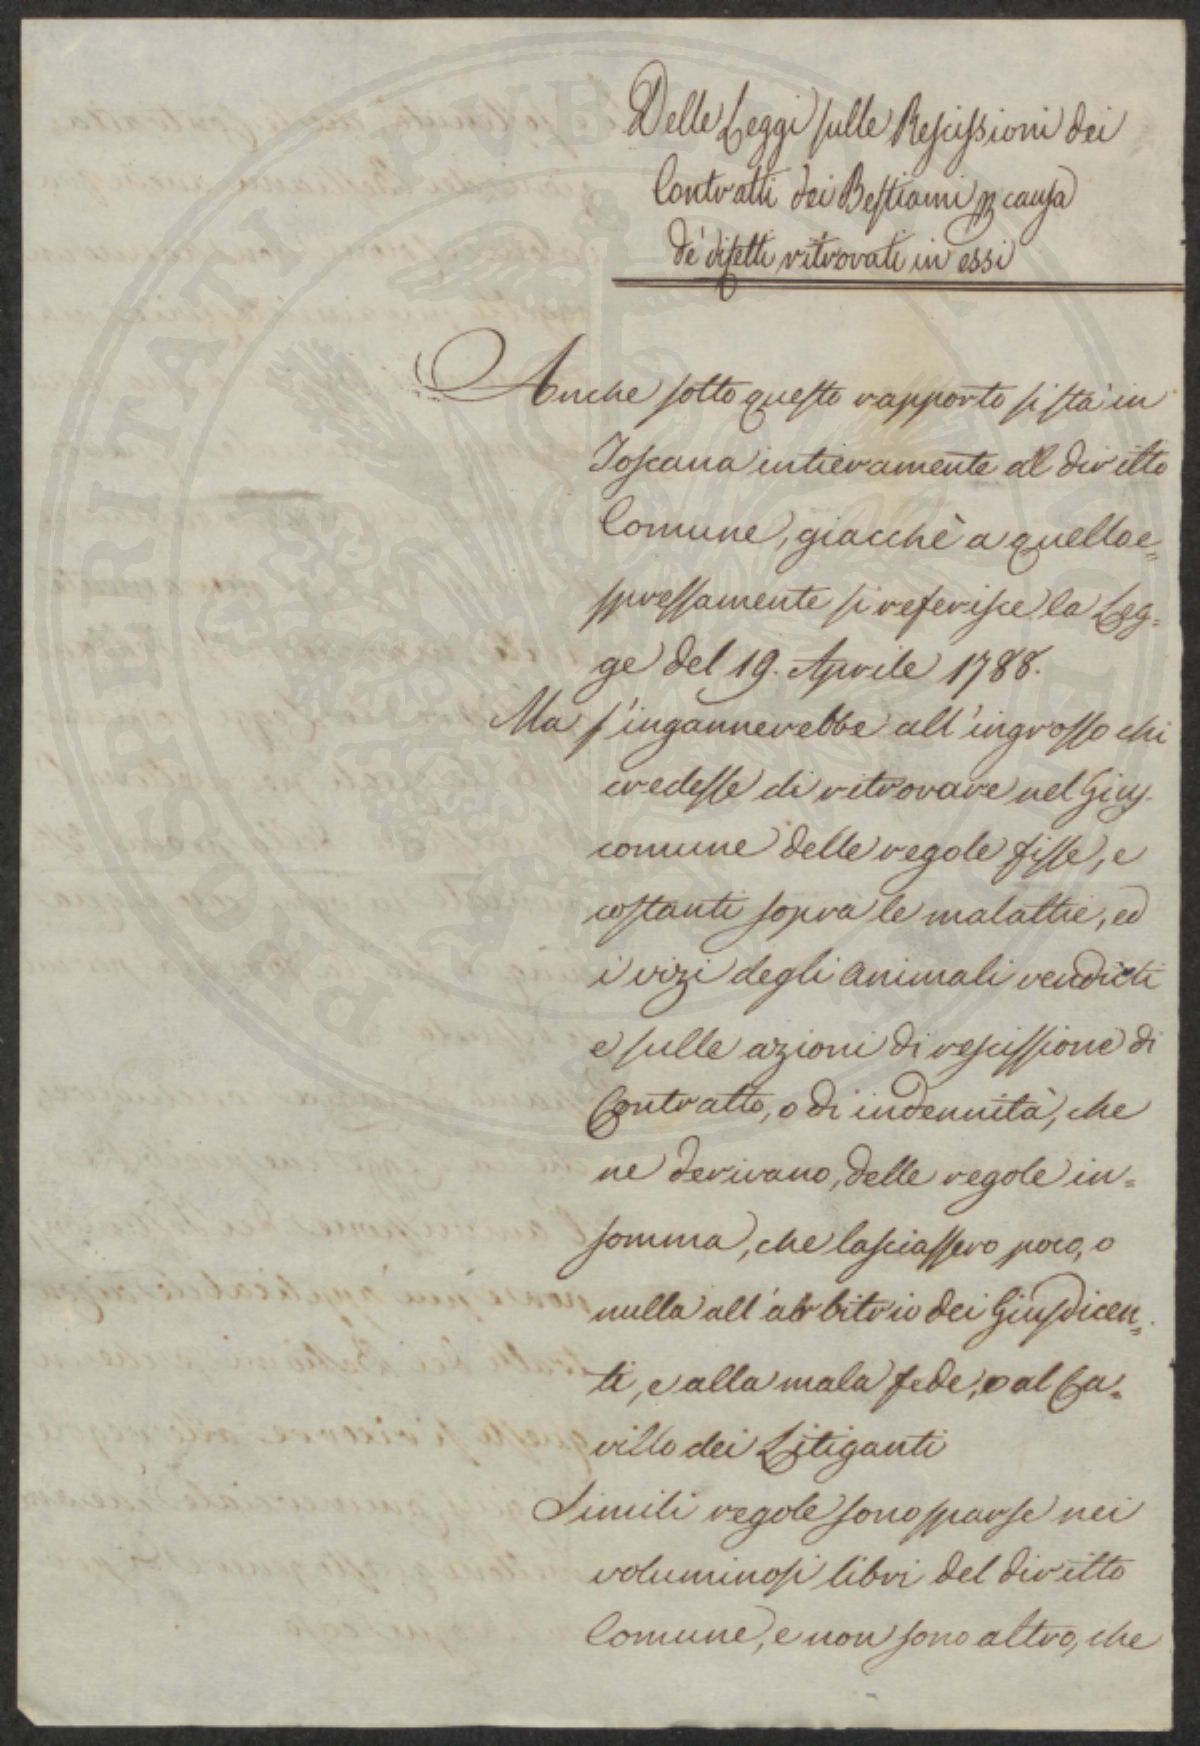 Delle Leggi sulle Rescissioni dei
Contratti dei Bestiami p causa
de' difetti ritrovati in essi
Anche sotto questo rapporto si stà in
Toscana intieramente al diritto
Comune, giacchè a quello e=
spressamente si referisce la Leg=
ge del 19. Aprile 1788.
Ma s'ingannerebbe all'ingrosso chi
credesse di ritrovare nel Gius
comune delle regole fisse, e
costanti sopra le malattie, ed
i vizi degli animali venduti
e sulle azioni di rescissione di
Contratto, o di indennità, che
ne derivano, delle regole in=
somma, che lasciassero poco, o
nulla all'arbitrio dei Giusdicen=
ti, e alla mala fede, o al Ca=
villo dei Litiganti
Simili regole sono sparse nei
voluminosi libri del diritto
Comune, e non sono altro, che
PROSPERITATI PVBLI